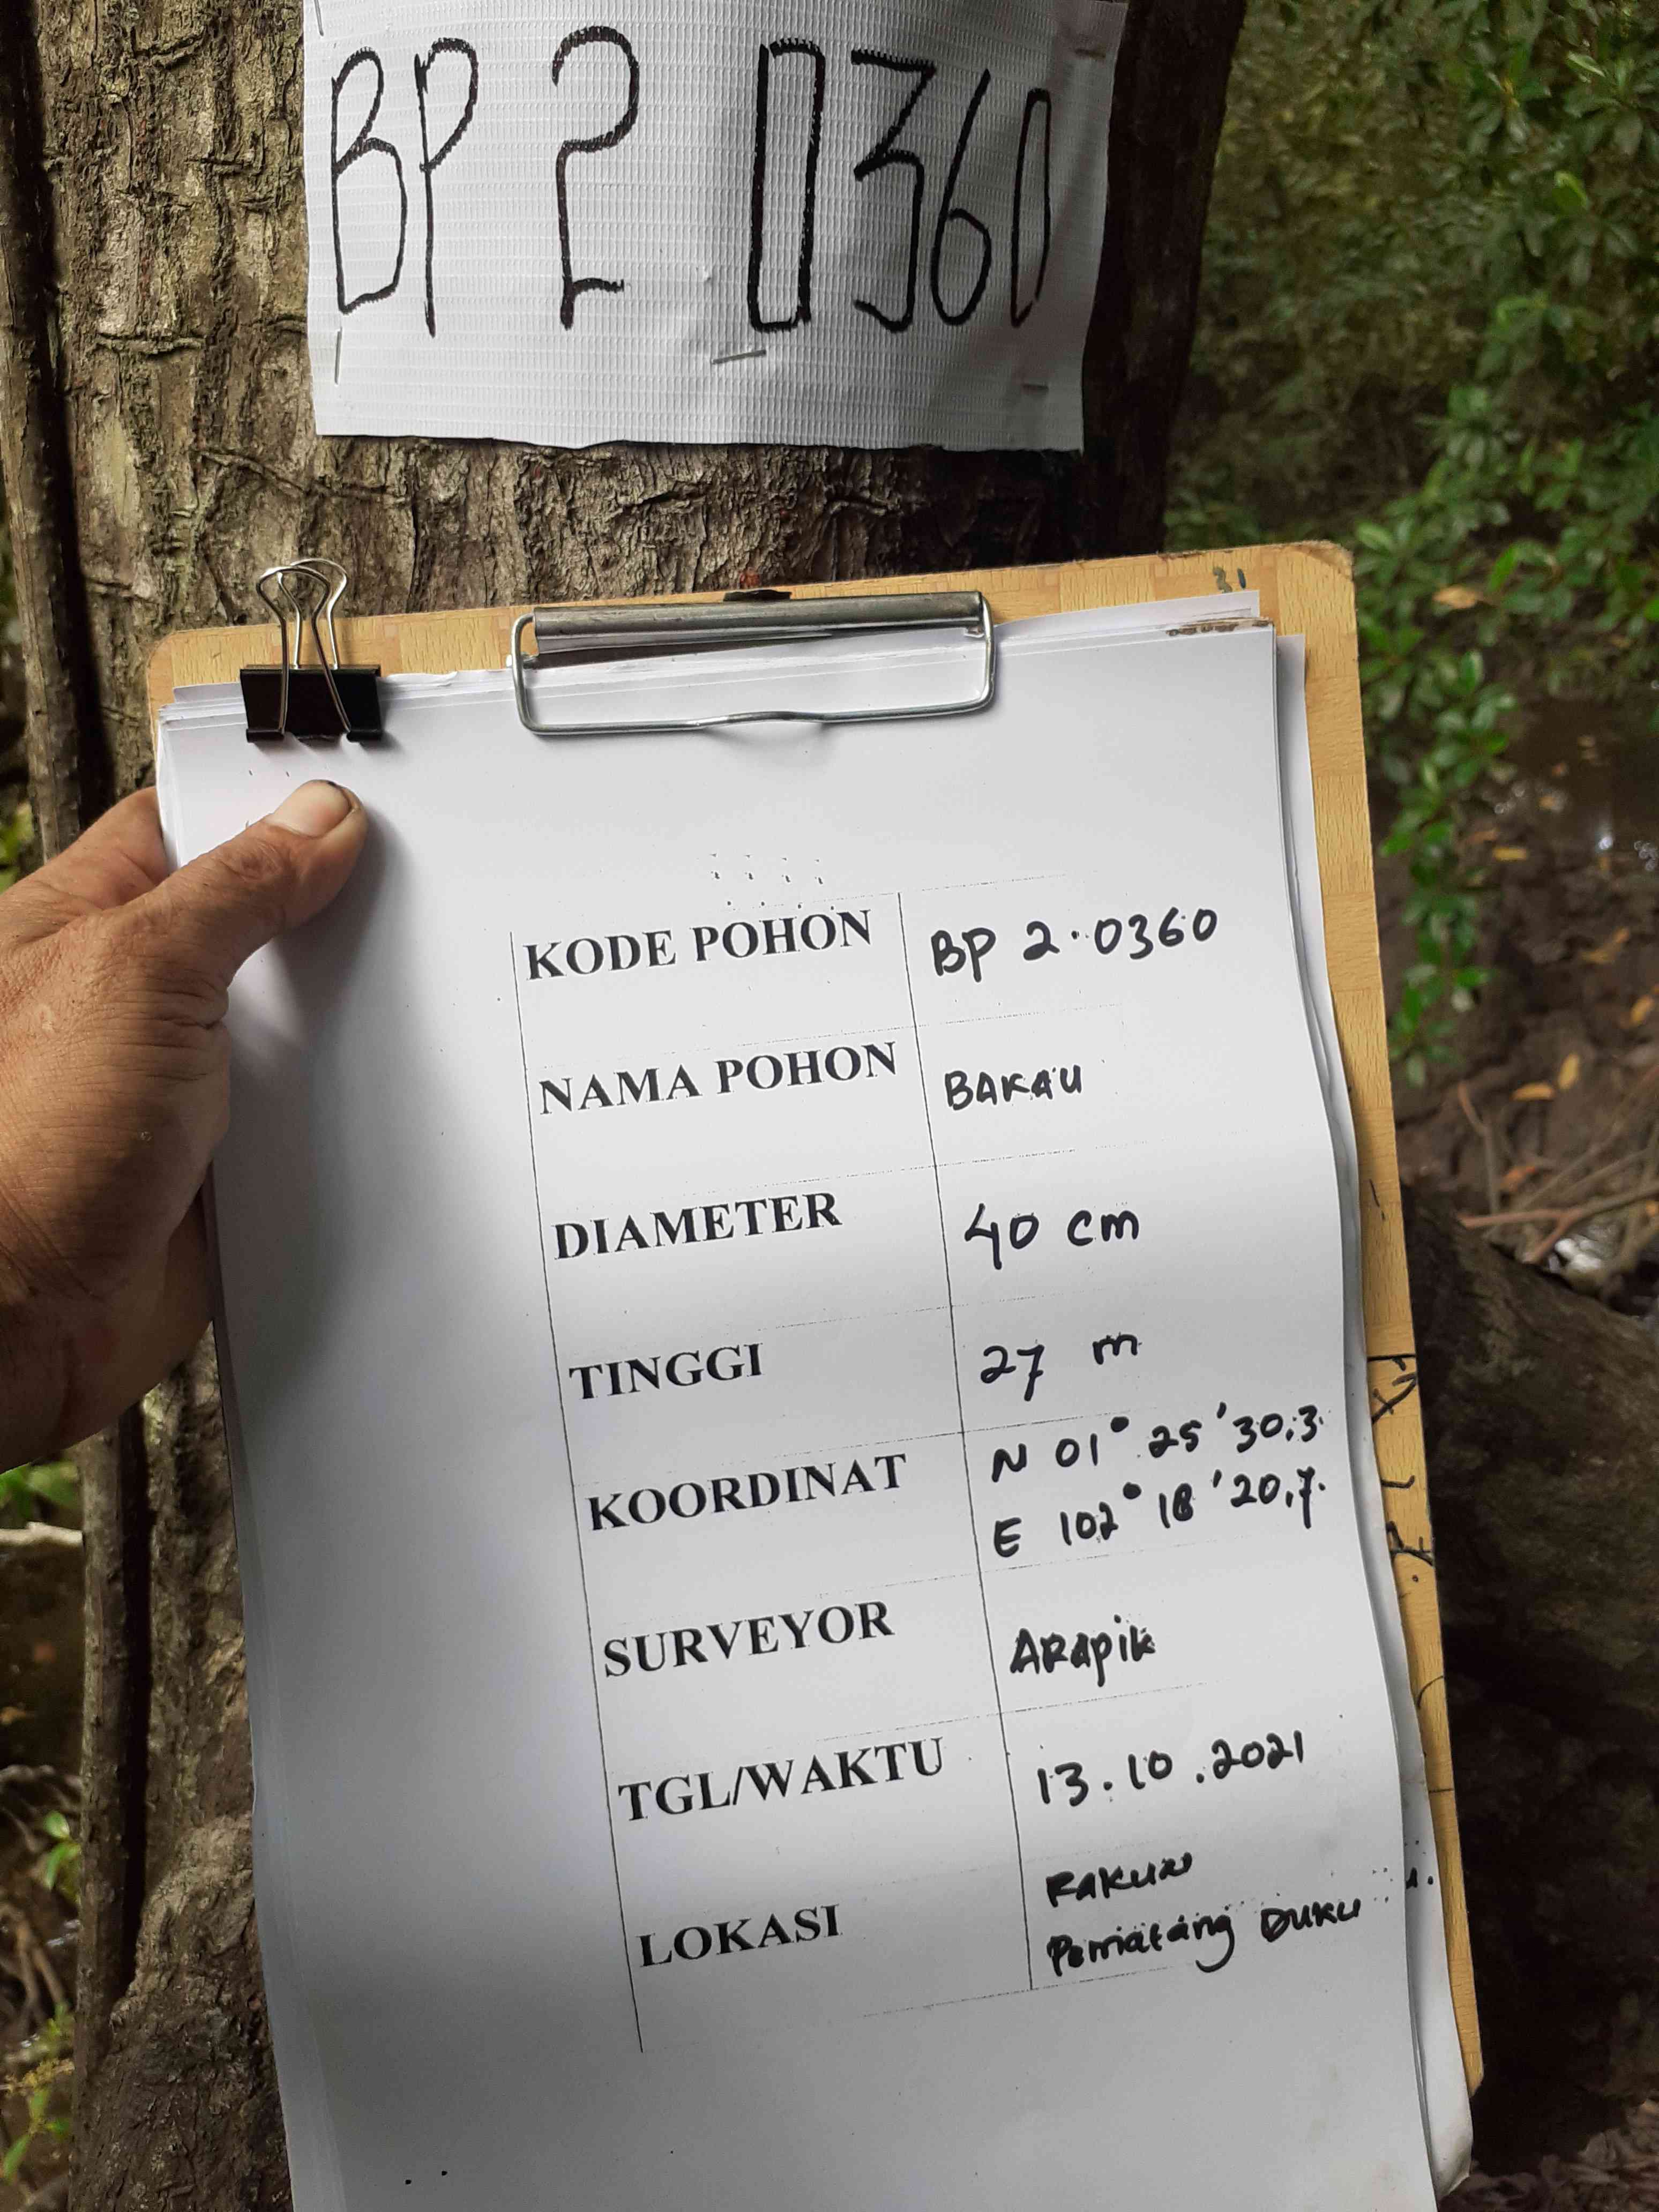 BP 2 0360
31
KODE POHON BP 2.0360
NAMA POHON BAKAU
DIAMETER 40 cm
TINGGI 27 m
KOORDINAT N 01° 25 '30,3.
E 102° 18 '20,7.
SURVEYOR ARAPIK
TGL/WAKTU 13.10.2021
LOKASI RAKUN
Pematang DUKU